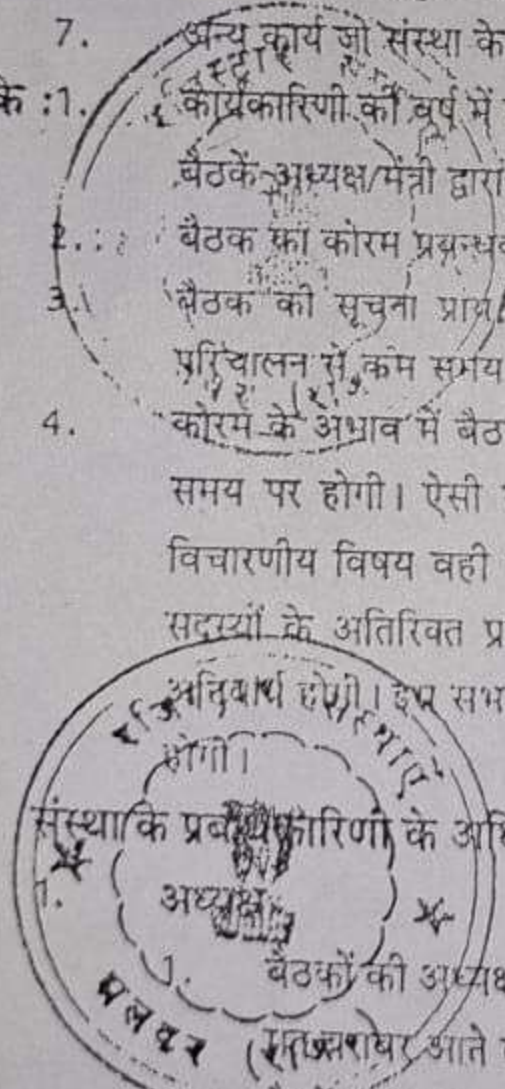 7. अन्य कार्य जो संस्था के
के :1. कार्यकारिणी की वर्ष में
बैठकें अध्यक्ष/मंत्री द्वारा
2. बैठक का कोरम
3. बैठक की सूचना प्रायः
परिचालन से कम समय
4. कोरम के अभाव में बैठ
समय पर होगी। ऐसी
विचारणीय विषय वही
सदस्यों के अतिरिक्त प्र
अनिवार्य होगी। इस सभ
होगी।
संस्था के के अधि
1. अध्यक्ष
1. बैठकों की अध्यक्ष
मत बराबर आने
रजि संस्थाएं
(राज